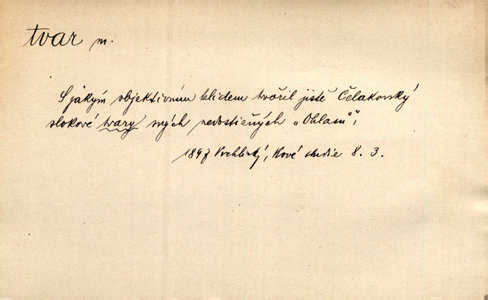 tvar m.
S jakým objektivním klidem tvořil jistě Čelakovský
slokové tvary svých nedostižných „Ohlasů",
1897 Vrchlický, Nové studie 8. 3.